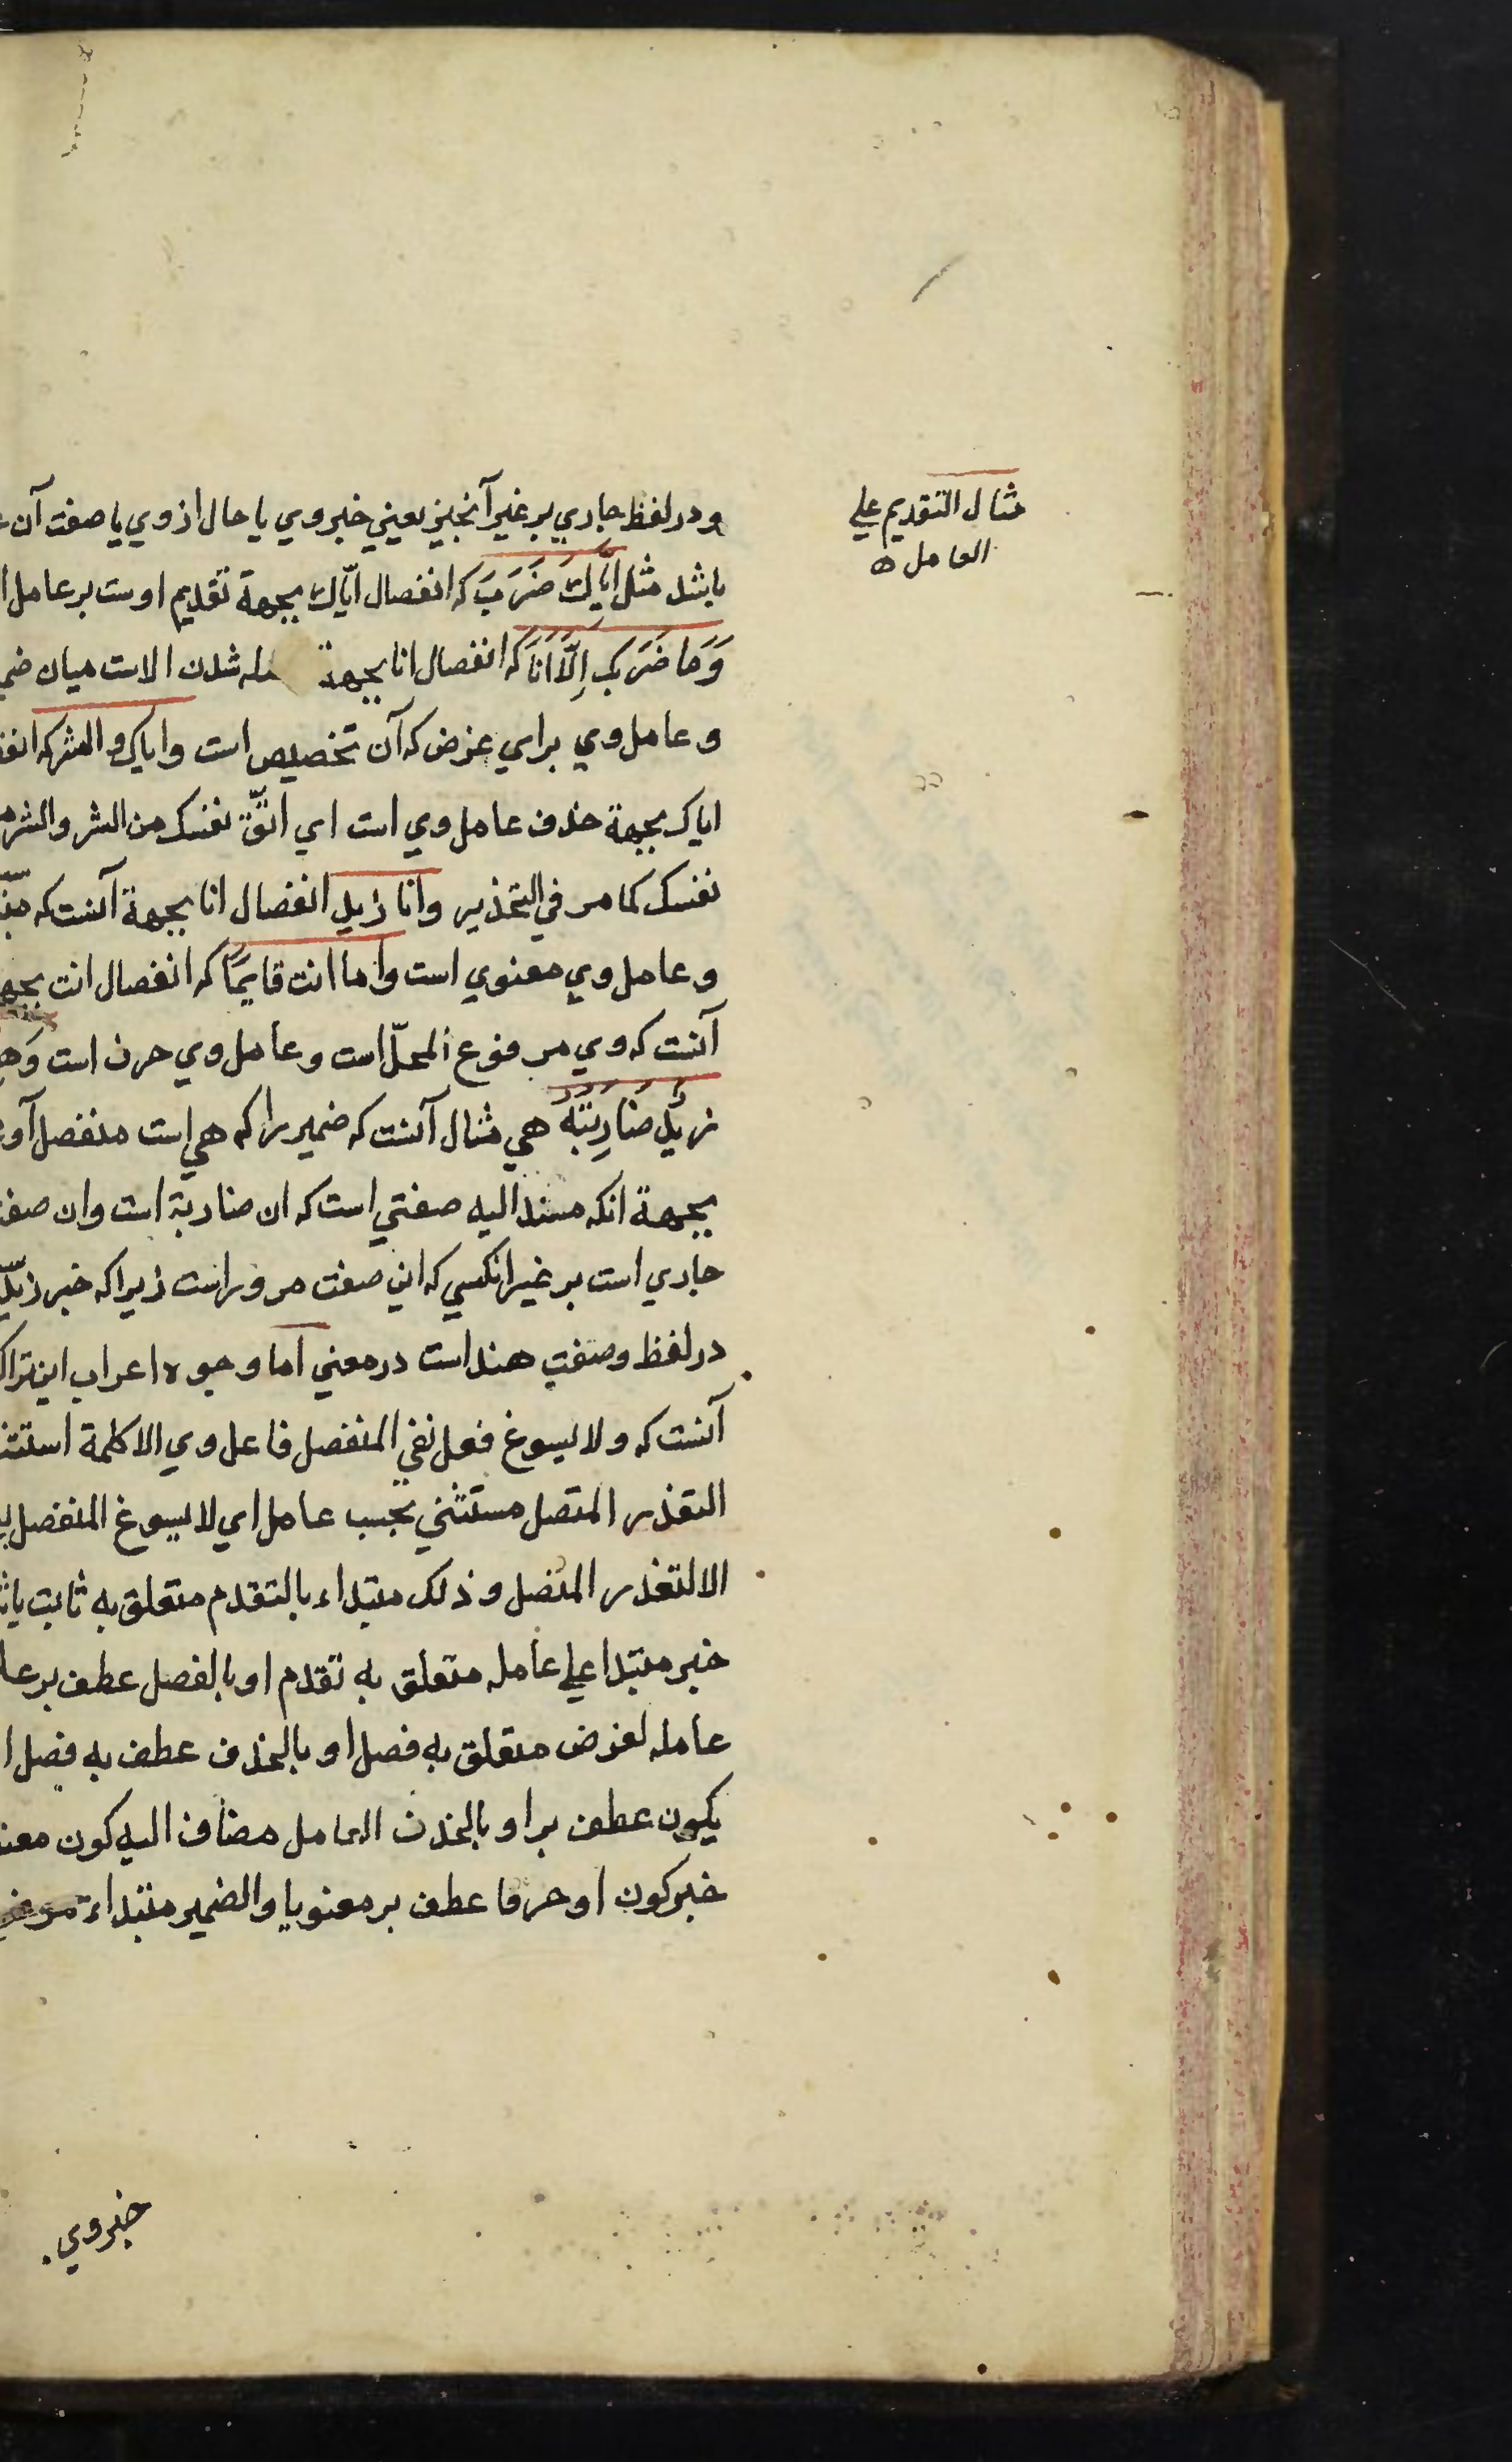 مثال التقديم علي
العامل ه
ودر لفظ جاري بر غير آنچيز يعني خبر وي يا حال از وي يا صفت آن
باشد مثل اِيّاكَ ضَرَبَ كه انفصال ايّاك بجهة تقديم اوست بر عامل
وَمَا ضَرَبَكَ اِلَّا اَنَا كه انفصال انا بجهة شدن الاست ميان
و عامل وي براي غرض كه آن تخصيص است واياك والشر كه
اياك بجهة حذف عامل وي است اي اتّق نفسك من الشر والشر
نفسك كما مر في التحذير وانا زيد انفصال انا بجهة آنست كه
و عامل وي معنوي است وما انت قايمًا كه انفصال انت
آنست كه وي مرفوع المحلّ است و عامل وي حرف است
زيدٌ ضَارِبَتُهُ هي مثال آنست كه ضمير را كه هي است منفصل
بجهة انكه مسند اليه صفتي است كه ان ضاربة است وان
جاري است بر غير انكسي كه اين صفت مرو راست زيرا كه خبر
در لفظ وصفت هند است در معني اما وجوه اعراب
آنست كه ولا يسوغ فعل نفي المنفصل فاعل وي الا كلمة
التعذر المتصل مستثني بحسب عامل اي لا يسوغ المنفصل
الا لتعذر المتصل وذلك مبتداء بالتقدم متعلق به ثابت
خبر مبتدا علي عامله متعلق به تقدم او بالفصل عطف بر
عامله لغرض متعلق به فصل او بالحذف عطف به فصل
يكون عطف بر او بالحذف العامل مضاف اليه كون
خبر كون او حرفا عطف بر معنويا والضمير مبتداء
خبر وي